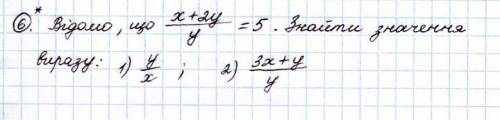 6.* Відомо, що (x+2y)/y = 5. Знайти значення
виразу: 1) y/x ; 2) (3x+y)/y